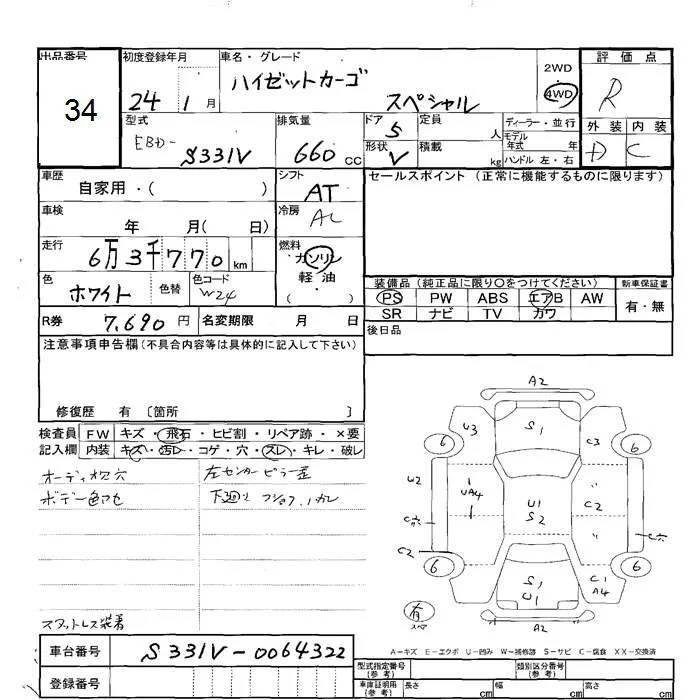 出品番号 初度登録年月 車名・グレード 評価点
34
24 1 月 ハイゼットカーゴ スペシャル 2WD 4WD R
型式 排気量 ドア 定員 ディーラー・並行 外装 内装
EBD- S331V 660 CC 5 人 モデル年式 年 D C
形状 V 積載 kg ハンドル 左・右
車歴 自家用・( ) シフト AT セールスポイント (正常に機能するものに限ります)
車検 年 月( 日) 冷房 AC
走行 6万3千770 km 燃料 ガソリン 軽油 ( )
色 ホワイト 色替 色コード W24
装備品 (純正品に限り〇をつけてください) 新車保証書
PS PW ABS エアB AW 有・無
SR ナビ TV カワ
R券 7,690 円 名変期限 月 日 後日品
注意事項申告欄(不具合内容等は具体的に記入して下さい)
修復歴 有 〔箇所 〕
検査員 FW キズ・飛石・ヒビ割・リペア跡・×要
記入欄 内装 キズ・汚レ・コゲ・穴・スレ・キレ・破レ
オーディオ穴 左センターピラー歪
ボデー色アセ 下廻り
スタットレス装着
A2
U3 S1 C3
6 6
U2 UA4 U1 S2 C2
C2
6 6
S1 U1 C1 A4
有
A2
A-キズ E-エクボ U-凹み W-補修跡 S-サビ C-腐食 XX-交換済
車台番号 S331V-0064322
登録番号
型式指定番号(参考) 類別区分番号(参考)
車庫証明用(参考) 長さ cm 幅 cm 高さ cm